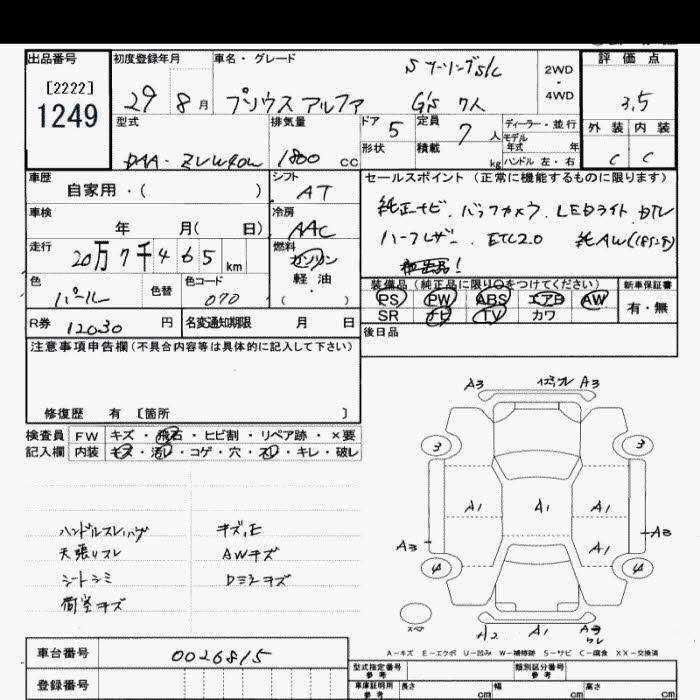 出品番号 初度登録年月 車名・グレード 評価点
[2222]
1249
29 8月 プリウスアルファ Sツーリングs/c G's 7人 2WD・4WD 3.5
外装 内装
C C
型式 排気量 ドア 5 定員 7人 ディーラー・並行
モデル年式 年
DAA-ZVW40W 1800cc 形状 積載 kg ハンドル 左・右
車歴 自家用・( ) シフト AT
車検 年 月( 日) 冷房 AAC
走行 20万7千465km 燃料 ガソリン 軽油 ( )
色 パール 色替 色コード 070
R券 12030円 名変通知期限 月 日
セールスポイント(正常に機能するものに限ります)
純正ナビ.バックカメラ.LEDライト.DTL
ハーフレザー. ETC2.0 純AW(18インチ)
装備品(純正品に限り○をつけてください) 新車保証書
PS PW ABS エアB AW 有・無
SR ナビ TV カワ
後日品
注意事項申告欄(不具合内容等は具体的に記入して下さい)
修復歴 有 [箇所 ]
検査員 FW キズ・飛石・ヒビ割・リペア跡・×要
記入欄 内装 キズ・汚レ・コゲ・穴・スレ・キレ・破レ
ハンドルスレ キズ,E
天張りスレ AWキズ
シートシミ Dミラーキズ
荷室キズ
A3 A3
3 3
A1 A1 A1
A3 A1 A3
4 4
スペア
A2 A1 A3
ワレ
A-キズ E-エクボ U-凹み W-補修跡 S-サビ C-腐食 XX-交換済
車台番号 0026815
登録番号
型式指定番号 参考 類別区分番号 参考
車庫証明用 参考 長さ cm 幅 cm 高さ cm